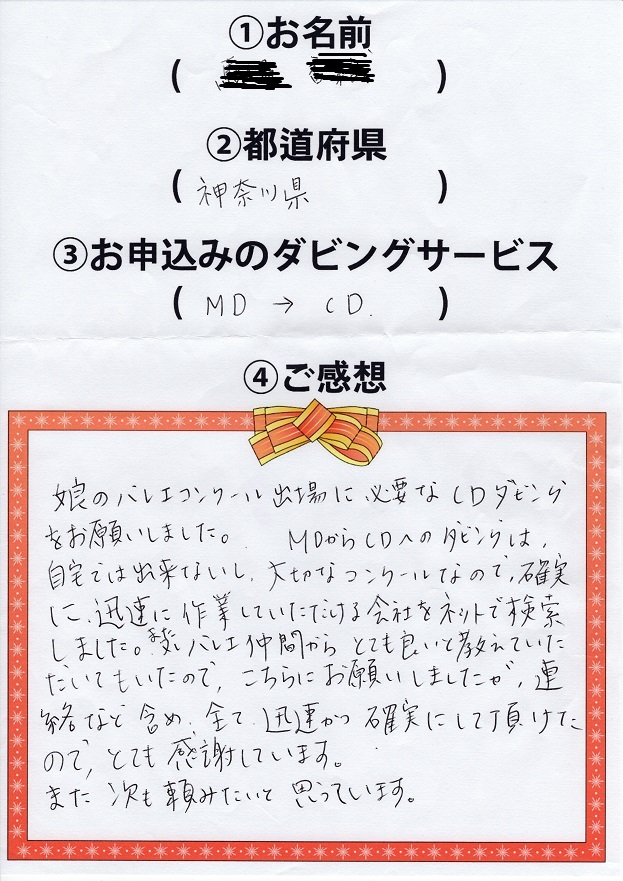 ①お名前
(　　　)
②都道府県
(神奈川県)
③お申込みのダビングサービス
(MD → CD.)
④ご感想
娘のバレエコンクール出場に必要なCDダビング
をお願いしました。 MDからCDへのダビングは、
自宅では出来ないし、大切なコンクールなので、確実
に、迅速に作業していただける会社をネットで検索
しました。バレエ仲間から とても良いと教えていた
だいてもいたので、こちらにお願いしましたが、連
絡など含め、全て、迅速かつ 確実にして頂けた
ので、とても 感謝しています。
また 次も頼みたいと 思っています。